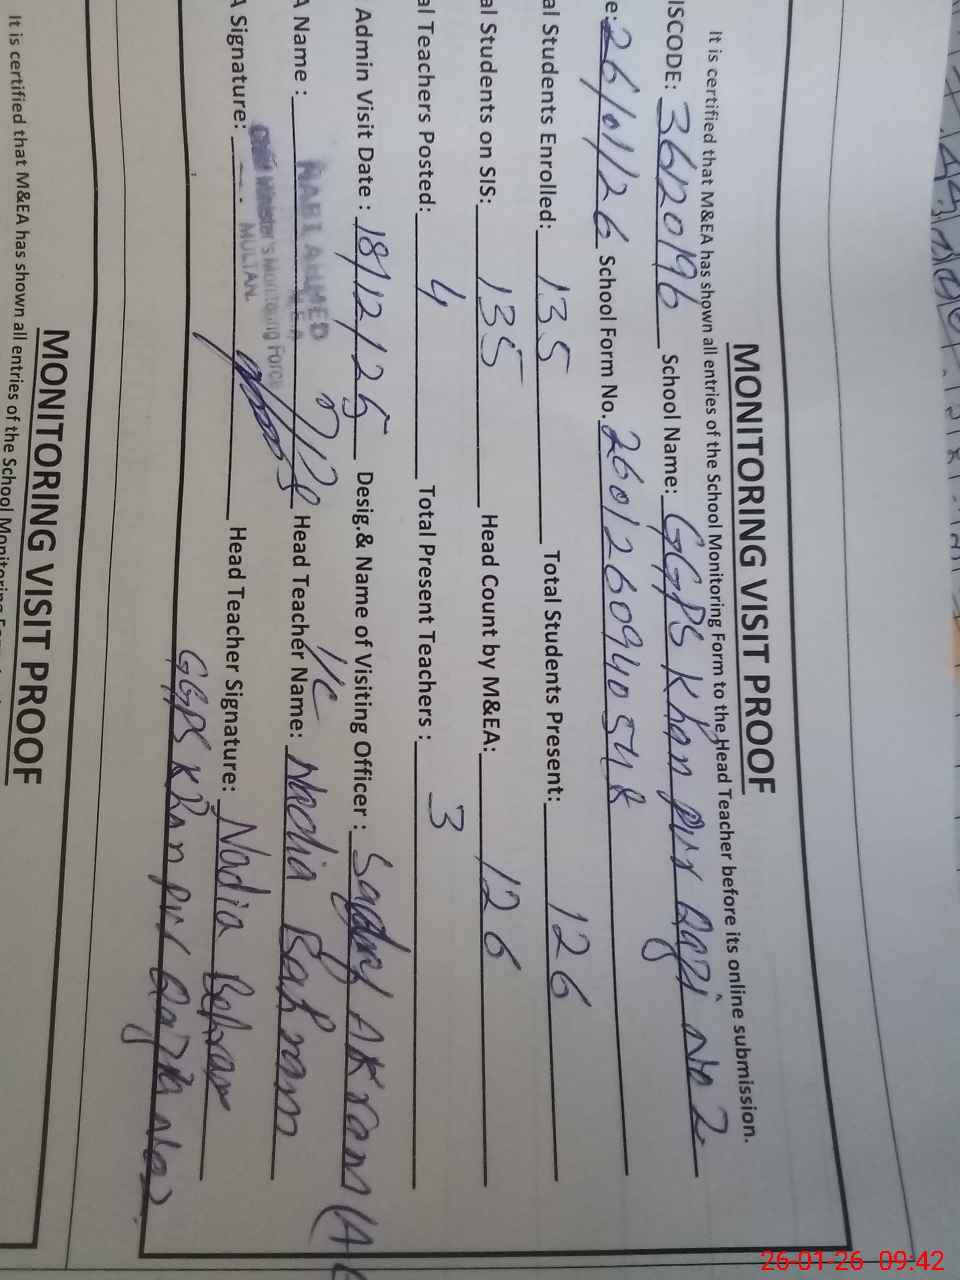 MONITORING VISIT PROOF
It is certified that M&EA has shown all entries of the School Monitoring Form to the Head Teacher before its online submission.
ISCODE: 36120196 School Name: GGPS Khan pur Qazi No 2
e: 26/01/26 School Form No. 260126094054
al Students Enrolled: 135 Total Students Present: 126
al Students on SIS: 135 Head Count by M&EA: 126
al Teachers Posted: 4 Total Present Teachers : 3
Admin Visit Date : 18/12/25 Desig.& Name of Visiting Officer : Akram
A Name : Head Teacher Name: I/C Nadia
A Signature: Head Teacher Signature: Nadia
Monitoring Force
MULTAN.
GGPS Khan pur Qazi No 2
MONITORING VISIT PROOF
It is certified that M&EA has shown all entries of the School Monitoring
26-01-26 09:42